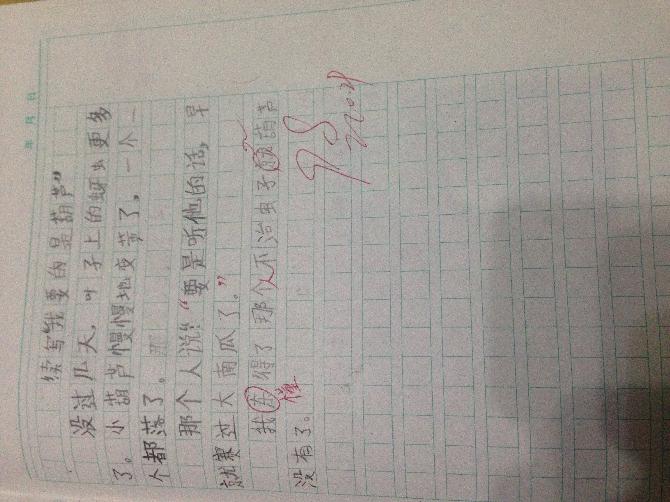 年 月 日
续写"我要的是葫芦"
没过几天，叶子上的蚜虫更多
了。小葫芦慢慢地变黄了，一个一
个都落了。
那个人说："要是听他的话，早
就赛过大南瓜了。"
我 得了那个人不治虫子 葫芦
懂
没有了。
98